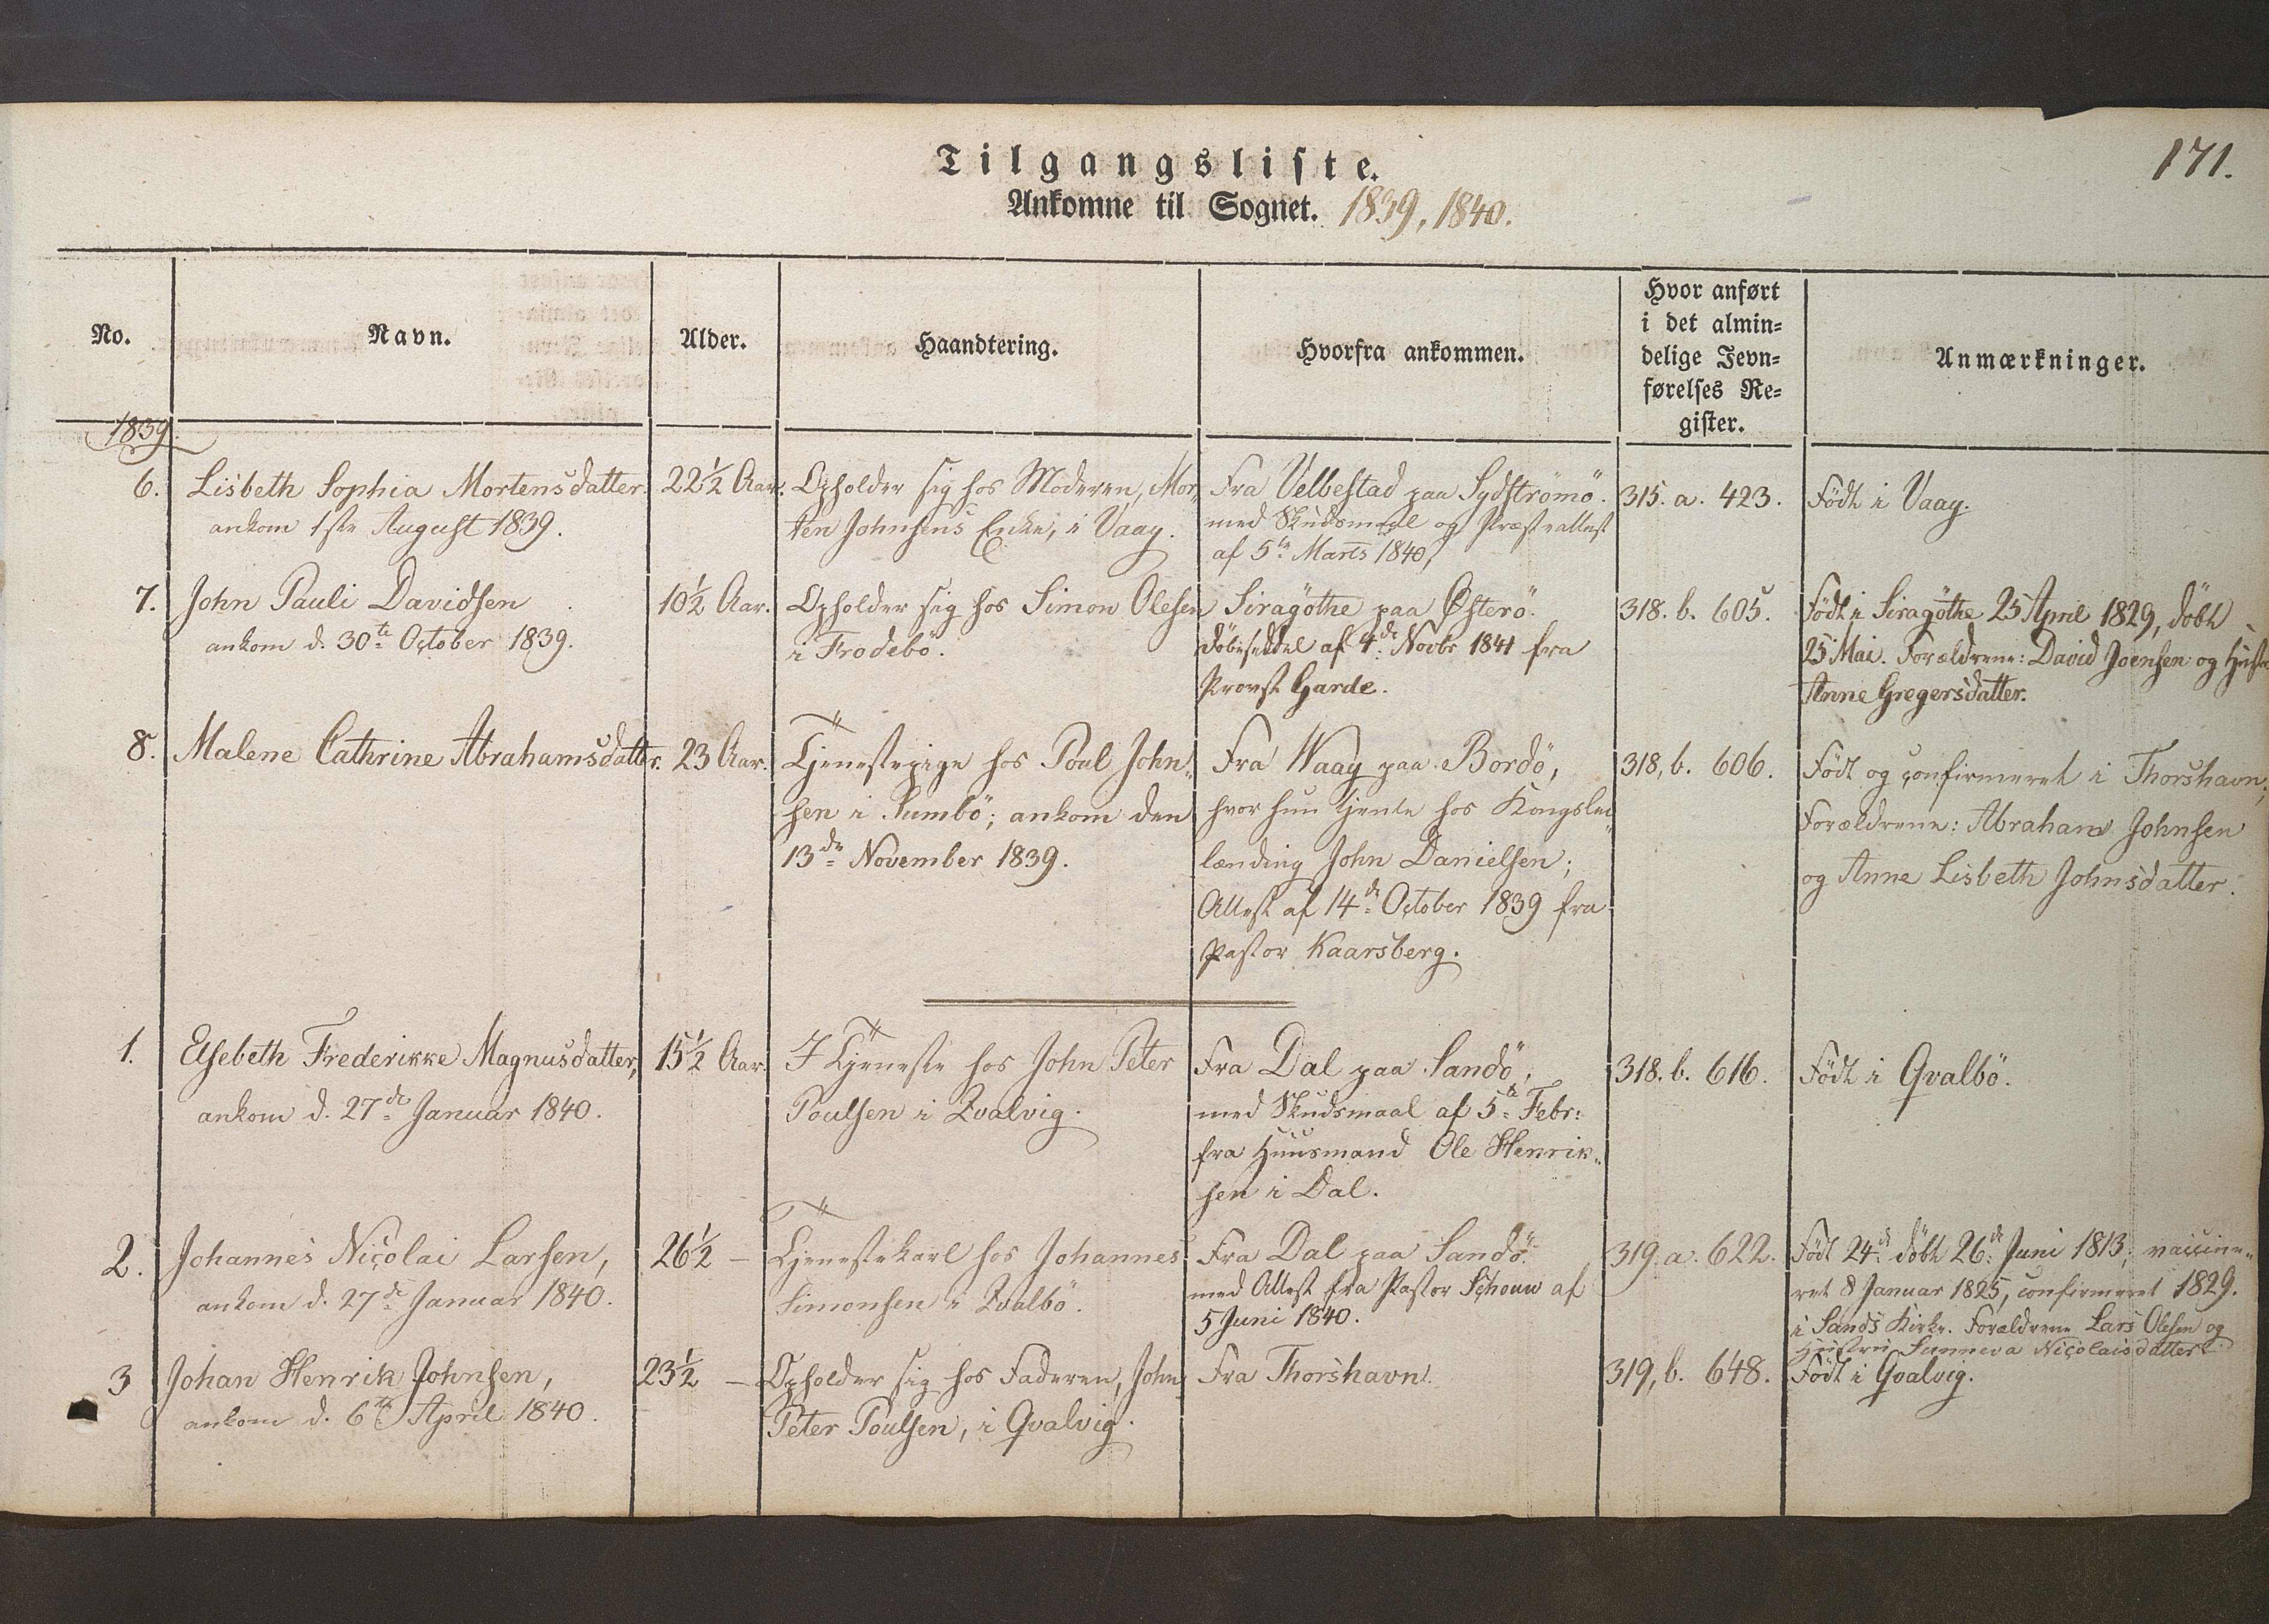 171.
Tilgangsliste.
Ankomne til Sognet. 1839, 1840.
No.
Navn.
Alder.
Haandtering.
Hvorfra ankommen.
Hvor anført
i det almin=
delige Jevn=
førelses Re=
gister.
Anmærkninger.
1839
6.
Lisbeth Sophia Mortensdatter.
ankom 1ste August 1839.
22½ Aar.
Opholder sig hos Moderen, Mor,,
ten Johnsens Enke, i Vaag.
Fra Velbestad paa Sydströmö.
med Skudsmaal og Præsteattest
af 5te Marts 1840,
315. a. 423.
Födt i Vaag.
7.
John Pauli Davidsen
ankom d. 30te October 1839.
10½ Aar.
Opholder sig hos Simon Olesen
i Frodebö.
Siragöthe paa Österö.
Döbeseddel af 4de Novbr 1841 fra
Provst Garde.
318. b. 605.
Födt i Siragöthe 25 April 1829, döbt
25 Mai. Forældrene: David Joensen og Hustru
Anne Gregersdatter.
8.
Malene Cathrine Abrahamsdatter.
23 Aar.
Tjenestepige hos Poul John,,
sen i Sumbö; ankom den
13de November 1839.
Fra Waag paa Bordö,
hvor hun tjente hos Kongslei,,
lænding John Danielsen;
Attest af 14de October 1839 fra
Pastor Kaarsberg.
318, b. 606.
Födt og confirmeret i Thorshavn;
Forældrene: Abraham Johnsen
og Anne Lisbeth Johnsdatter.
1.
Elsebeth Frederikke Magnusdatter,
ankom d. 27de Januar 1840.
15½ Aar.
I Tjeneste hos John Peter
Poulsen i Qvalvig.
Fra Dal paa Sandö,
med Skudsmaal af 5te Febr:
fra Huusmand Ole Henrik,,
sen i Dal.
318. b. 616.
Födt i Qvalbö.
2.
Johannes Nicolai Larsen,
ankom d. 27de Januar 1840.
26½ —
Tjenestekarl hos Johannes
Simonsen i Qvalbö.
Fra Dal paa Sandö.
med Attest fra Pastor Schouw af
5 Juni 1840.
319. a. 622.
Födt 24de döbt 26de Juni 1813; vaccine,,
ret 8 Januar 1825, confirmeret 1829.
i Sands Kirke. Forældrene Lars Olesen og
Hustru Sunneva Nicolaisdatter.
3
Johan Henrik Johnsen,
ankom d. 6te April 1840.
23½ —
Opholder sig hos Faderen, John
Peter Poulsen, i Qvalvig.
Fra Thorshavn.
319, b. 648.
Födt i Qvalvig.